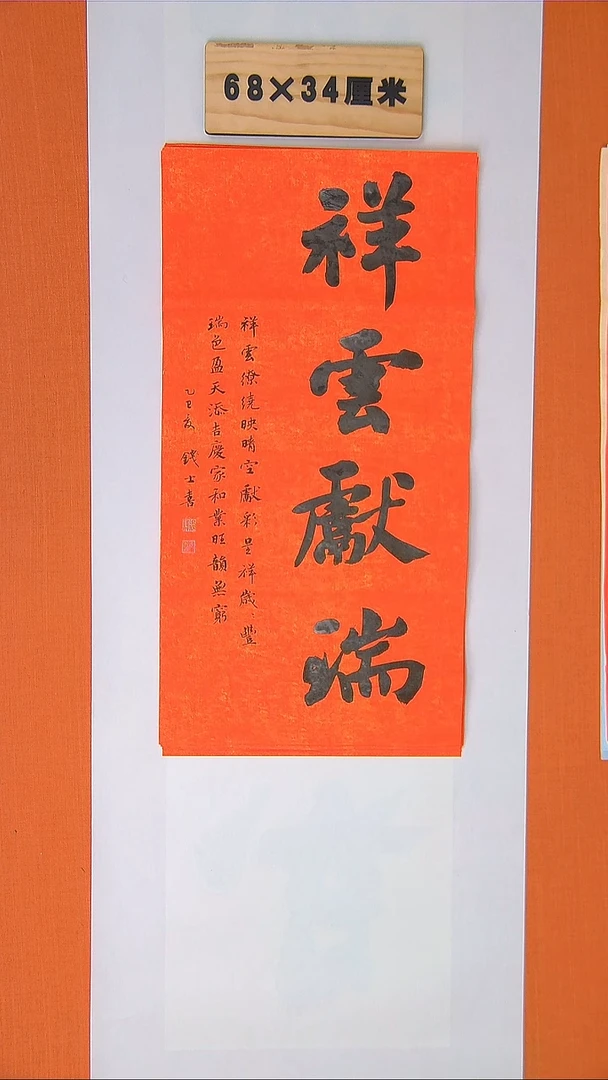 68×34厘米
祥雲獻瑞
祥雲繚繞映晴空獻彩呈祥歲歲豐
瑞色盈天添吉慶家和業旺韻無窮
乙巳夏 錢士喜